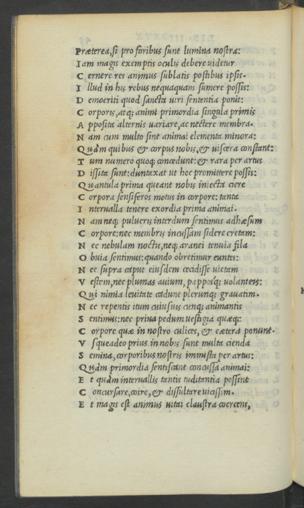 Præterea si pro foribus sunt lumina nostra:
I am magis exemptis oculis debere uidetur
C ernere res animus sublatis postibus ipsis.
I llud in his rebus nequaquam sumere possis:
D emocriti quod sancta uiri sententia ponit:
C orporis, atq; animi primordia singula primis
A pposita alternis uariare, ac nectere membra.
N am cum multo sint animai elementa minora:
Q uàm quibus & corpus nobis, & uiscera constant:
T um numero quoq; concedunt: & rara per artus
D issita sunt: duntaxat ut hoc promittere possis:
Q uantula prima queant nobis iniecta ciere
C orpora sensiferos motus in corpore: tanta
I nterualla tenere exordia prima animai.
N am neq; pulueris interdum sentimus adhæsum
C orpore: nec membris incussam sidere cretam:
N ec nebulam noctu, neq; aranei tenuia fila
O buia sentimus: quando obretimur euntis:
N ec supra caput eiusdem cecidisse uietam
V estem, nec plumas auium, papposq; uolanteis:
Q ui nimia leuitate cadunt plerunq; grauatim.
N ec repentis itum cuiusuis cunq; animantis
S entimus: nec priua pedum uestigia quæq;
C orpore quæ in nostro culices, & cætera ponunt.
V sque adeo prius in nobis sunt multa cienda
S emina, corporibus nostris immista per artus:
Q uàm primordia sentiscant concussa animai:
E t quàm interuallis tantis tuditantia possint
C oncursare, coire, & dissultare uicissim.
E t magis est animus uitai claustra coercens,